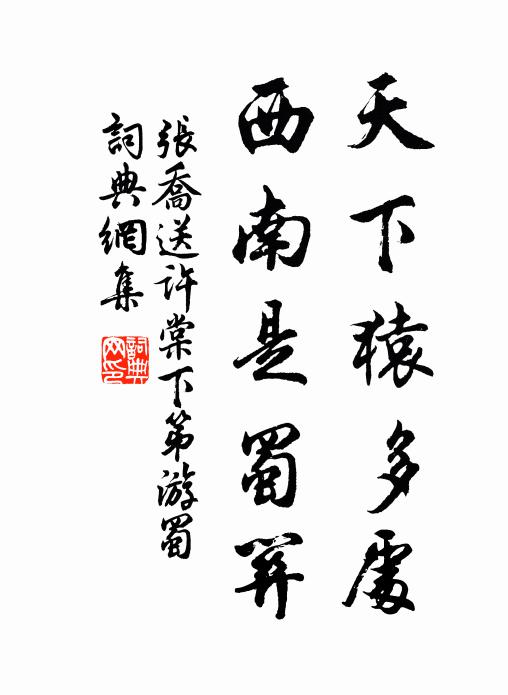 天下猿多處
西南是蜀關
張喬送許棠下第游蜀
詞典網集
詞典網印